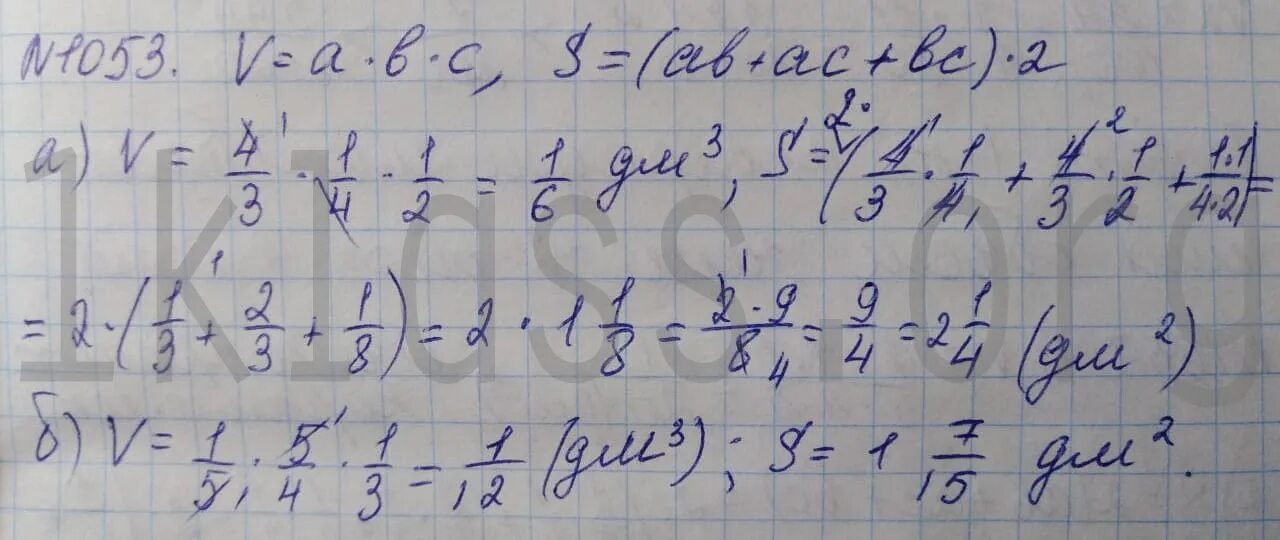 N1053. V = a · b · c, S = (ab + ac + bc) · 2
а) V = 4/3 · 1/4 · 1/2 = 1/6 дм³, S = 2 · (4/3 · 1/4 + 4/3 · 1/2 + 1·1/4·2) =
= 2 · (1/3 + 2/3 + 1/8) = 2 · 1 1/8 = 2·9/8 = 9/4 = 2 1/4 (дм²)
б) V = 1/5 · 5/4 · 1/3 = 1/12 (дм³); S = 1 7/15 дм².
1klass.org